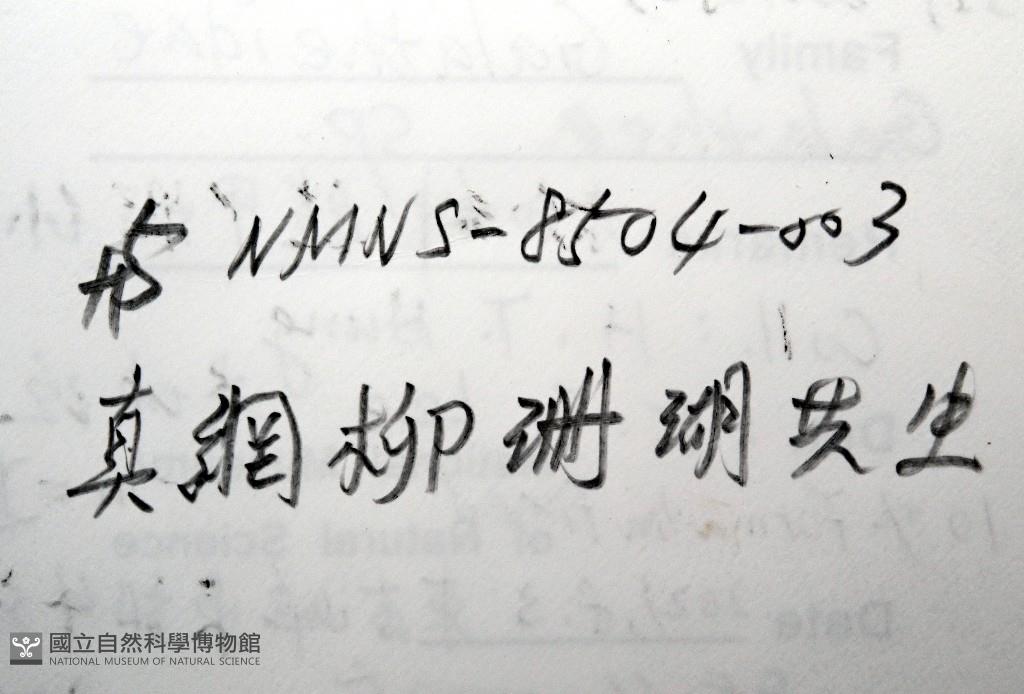 與 NMNS-8504-003
真網柳珊瑚共生
國立自然科學博物館
NATIONAL MUSEUM OF NATURAL SCIENCE